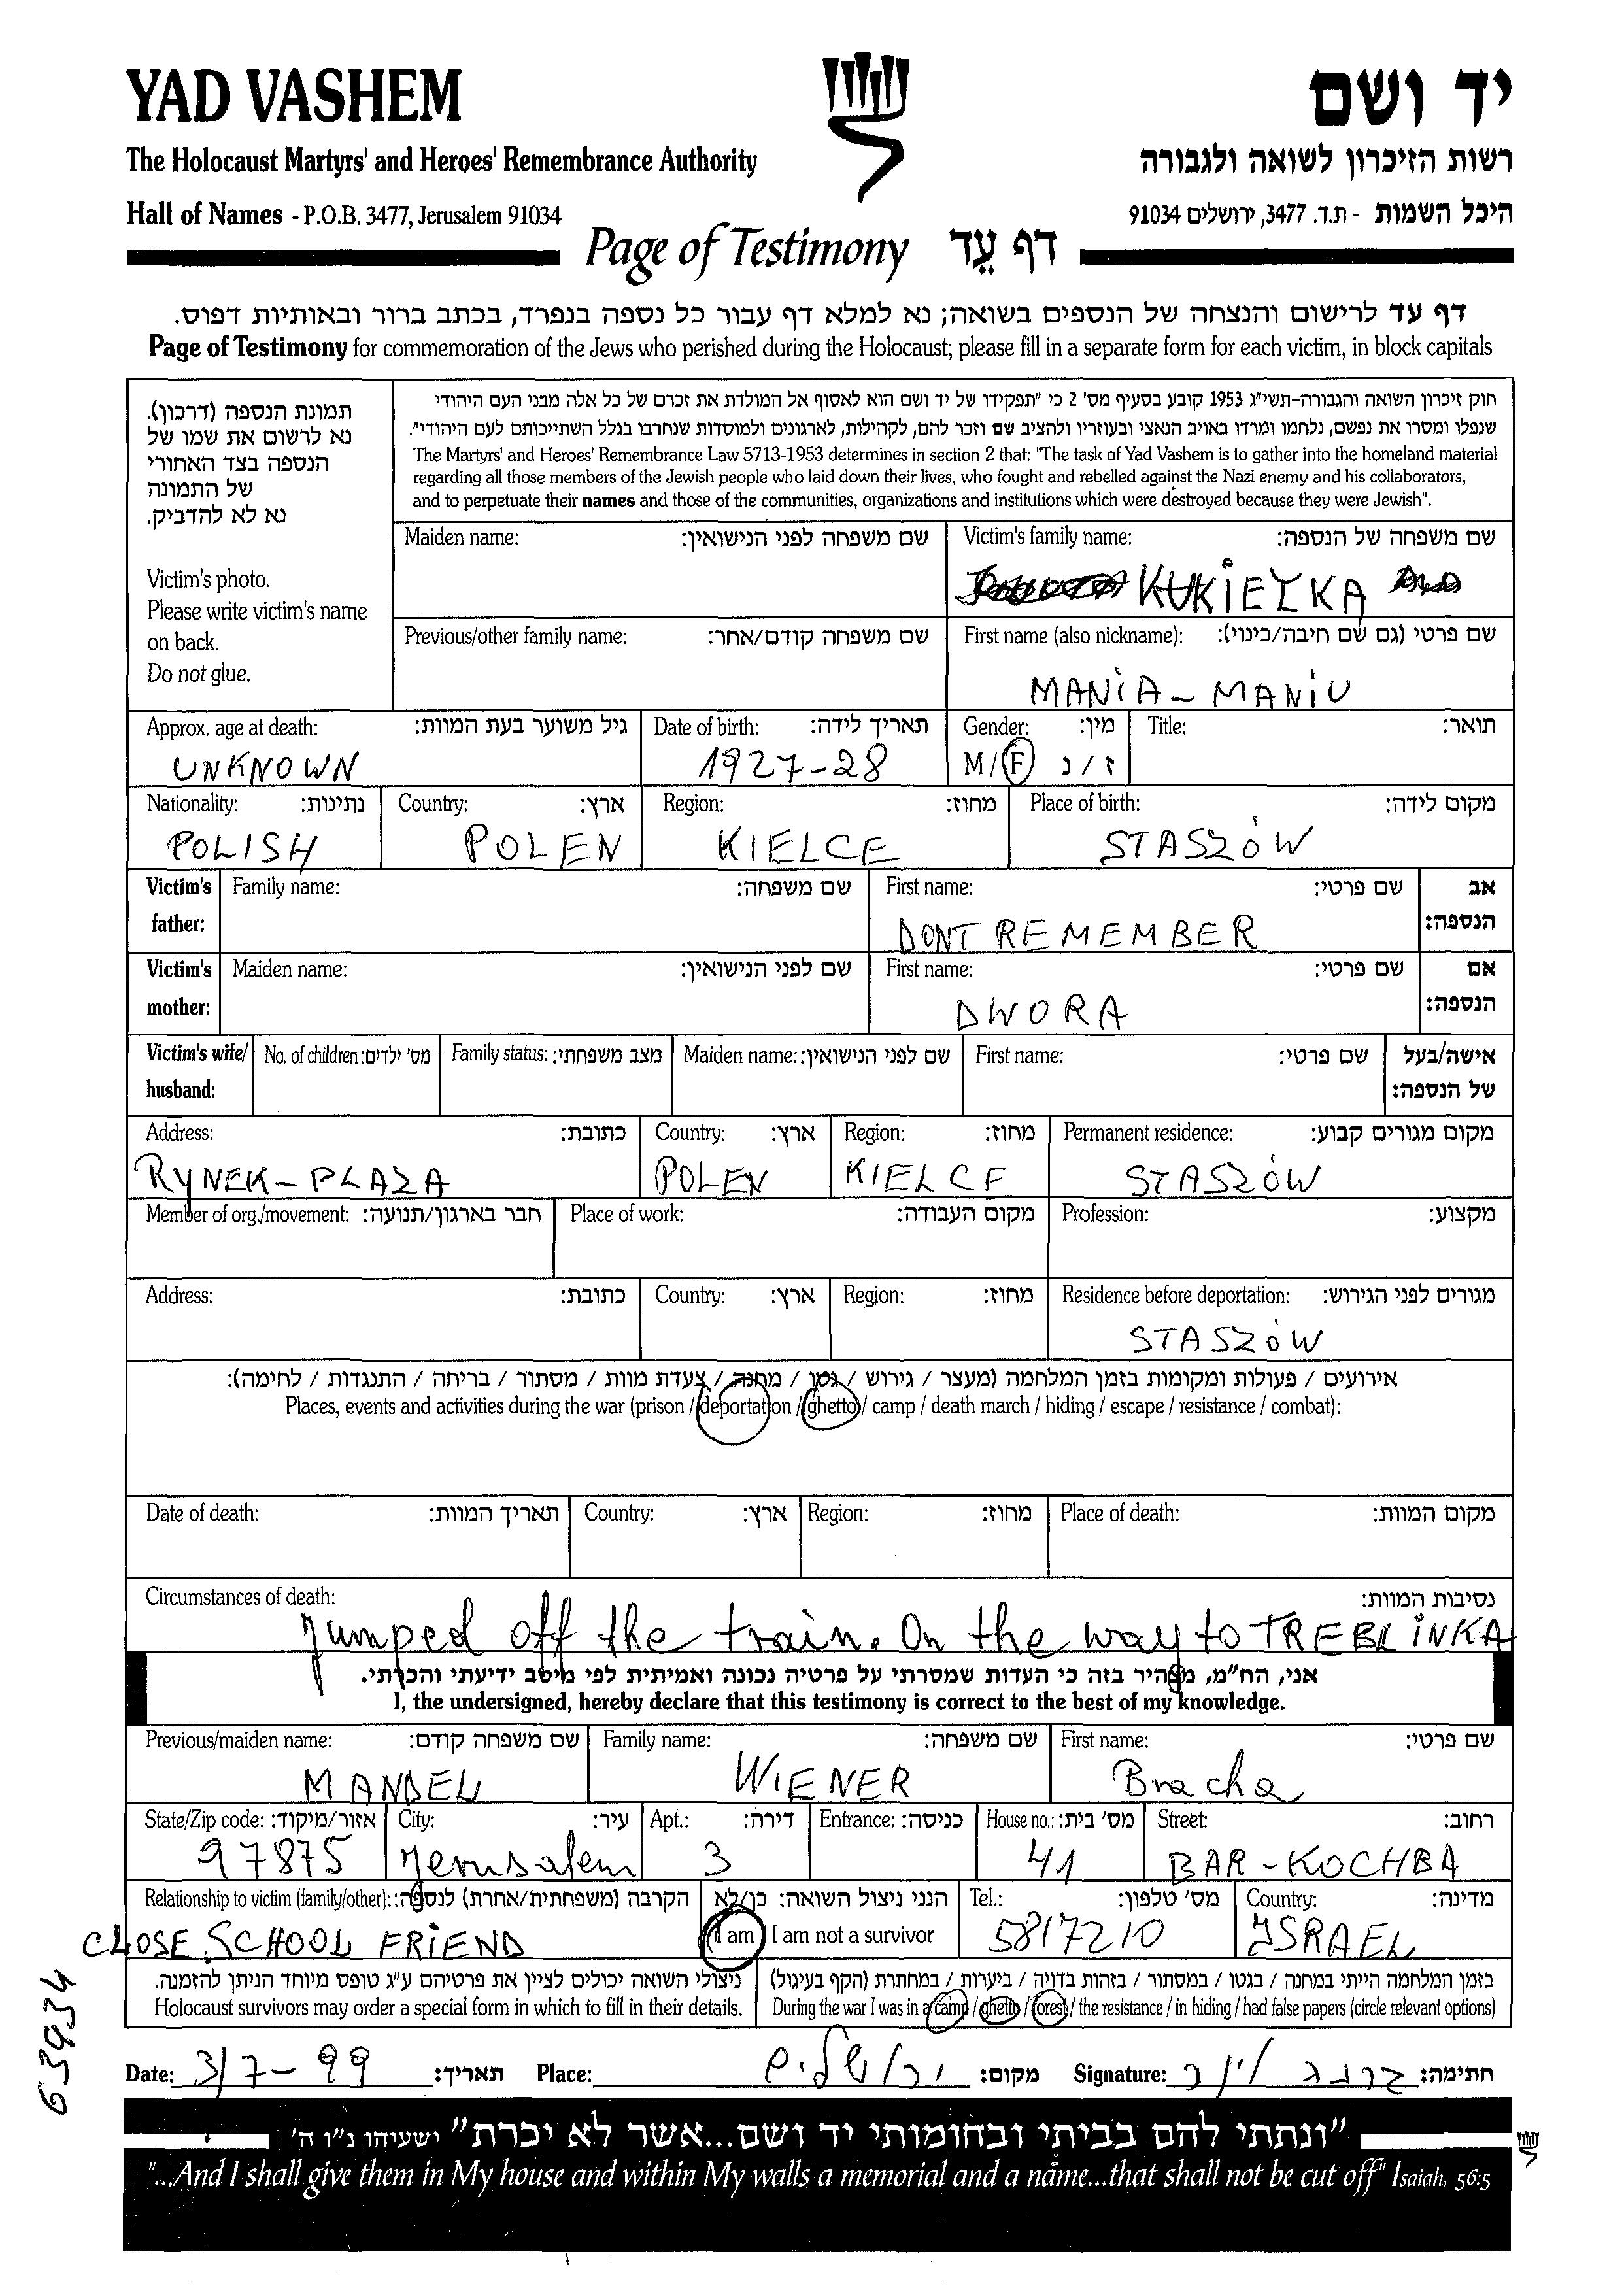 YAD VASHEM
יד ושם
The Holocaust Martyrs' and Heroes' Remembrance Authority
רשות הזיכרון לשואה ולגבורה
Hall of Names - P.O.B. 3477, Jerusalem 91034
היכל השמות - ת.ד. 3477, ירושלים 91034
Page of Testimony דף עֵד
דף עד לרישום והנצחה של הנספים בשואה; נא למלא דף עבור כל נספה בנפרד, בכתב ברור ובאותיות דפוס.
Page of Testimony for commemoration of the Jews who perished during the Holocaust; please fill in a separate form for each victim, in block capitals
תמונת הנספה (דרכון).
נא לרשום את שמו של
הנספה בצד האחורי
של התמונה
נא לא להדביק.
Victim's photo.
Please write victim's name
on back.
Do not glue.
חוק זיכרון השואה והגבורה-תשי"ג 1953 קובע בסעיף מס' 2 כי "תפקידו של יד ושם הוא לאסוף אל המולדת את זכרם של כל אלה מבני העם היהודי
שנפלו ומסרו את נפשם, נלחמו ומרדו באויב הנאצי ובעוזריו ולהציב שם וזכר להם, לקהילות, לארגונים ולמוסדות שנחרבו בגלל השתייכותם לעם היהודי".
The Martyrs' and Heroes' Remembrance Law 5713-1953 determines in section 2 that: "The task of Yad Vashem is to gather into the homeland material
regarding all those members of the Jewish people who laid down their lives, who fought and rebelled against the Nazi enemy and his collaborators,
and to perpetuate their names and those of the communities, organizations and institutions which were destroyed because they were Jewish".
Maiden name: שם משפחה לפני הנישואין:
Victim's family name: שם משפחה של הנספה:
KUKIEŁKA
Previous/other family name: שם משפחה קודם/אחר:
First name (also nickname): שם פרטי (גם שם חיבה/כינוי):
MANIA - MANIU
Approx. age at death: גיל משוער בעת המוות: Date of birth: תאריך לידה: Gender: מין: Title: תואר:
UNKNOWN 1927-28 M / F ז / נ
Nationality: נתינות: Country: ארץ: Region: מחוז: Place of birth: מקום לידה:
POLISH POLEN KIELCE STASZÓW
Victim's father: Family name: שם משפחה: First name: שם פרטי: אב הנספה:
DONT REMEMBER
Victim's mother: Maiden name: שם לפני הנישואין: First name: שם פרטי: אם הנספה:
DWORA
Victim's wife/ husband: No. of children: מס' ילדים: Family status: מצב משפחתי: Maiden name: שם לפני הנישואין: First name: שם פרטי: אישה/בעל של הנספה:
Address: כתובת: Country: ארץ: Region: מחוז: Permanent residence: מקום מגורים קבוע:
RYNEK - PLAZA POLEN KIELCE STASZÓW
Member of org./movement: חבר בארגון/תנועה: Place of work: מקום העבודה: Profession: מקצוע:
Address: כתובת: Country: ארץ: Region: מחוז: Residence before deportation: מגורים לפני הגירוש:
STASZÓW
אירועים / פעולות ומקומות בזמן המלחמה (מעצר / גירוש / גטו / מחנה / צעדת מוות / מסתור / בריחה / התנגדות / לחימה):
Places, events and activities during the war (prison / deportation / ghetto / camp / death march / hiding / escape / resistance / combat):
Date of death: תאריך המוות: Country: ארץ: Region: מחוז: Place of death: מקום המוות:
Circumstances of death: נסיבות המוות:
Jumped off the train. On the way to TREBLINKA
אני, הח"מ, מצהיר בזה כי העדות שמסרתי על פרטיה נכונה ואמיתית לפי מיטב ידיעתי והכרתי.
I, the undersigned, hereby declare that this testimony is correct to the best of my knowledge.
Previous/maiden name: שם משפחה קודם: Family name: שם משפחה: First name: שם פרטי:
MANDEL WIENER Bracha
State/Zip code: אזור/מיקוד: City: עיר: Apt.: דירה: Entrance: כניסה: House no.: מס' בית: Street: רחוב:
97875 Jerusalem 3 41 BAR-KOCHBA
Relationship to victim (family/other): הקרבה (משפחתית/אחרת) לנספה: הנני ניצול השואה: כן/לא Tel.: מס' טלפון: Country: מדינה:
CLOSE SCHOOL FRIEND I am / I am not a survivor 5817210 ISRAEL
ניצולי השואה יכולים לציין את פרטיהם ע"ג טופס מיוחד הניתן להזמנה.
Holocaust survivors may order a special form in which to fill in their details.
בזמן המלחמה הייתי במחנה / בגטו / במסתור / בזהות בדויה / ביערות / במחתרת (הקף בעיגול)
During the war I was in a camp / ghetto / forest / the resistance / in hiding / had false papers (circle relevant options)
63934
Date: 3/7-99 תאריך: Place: ירושלים מקום: Signature: ברכה וינר חתימה:
"ונתתי להם בביתי ובחומותי יד ושם...אשר לא יכרת" ישעיהו נ"ו ה'
"...And I shall give them in My house and within My walls a memorial and a name...that shall not be cut off" Isaiah, 56:5